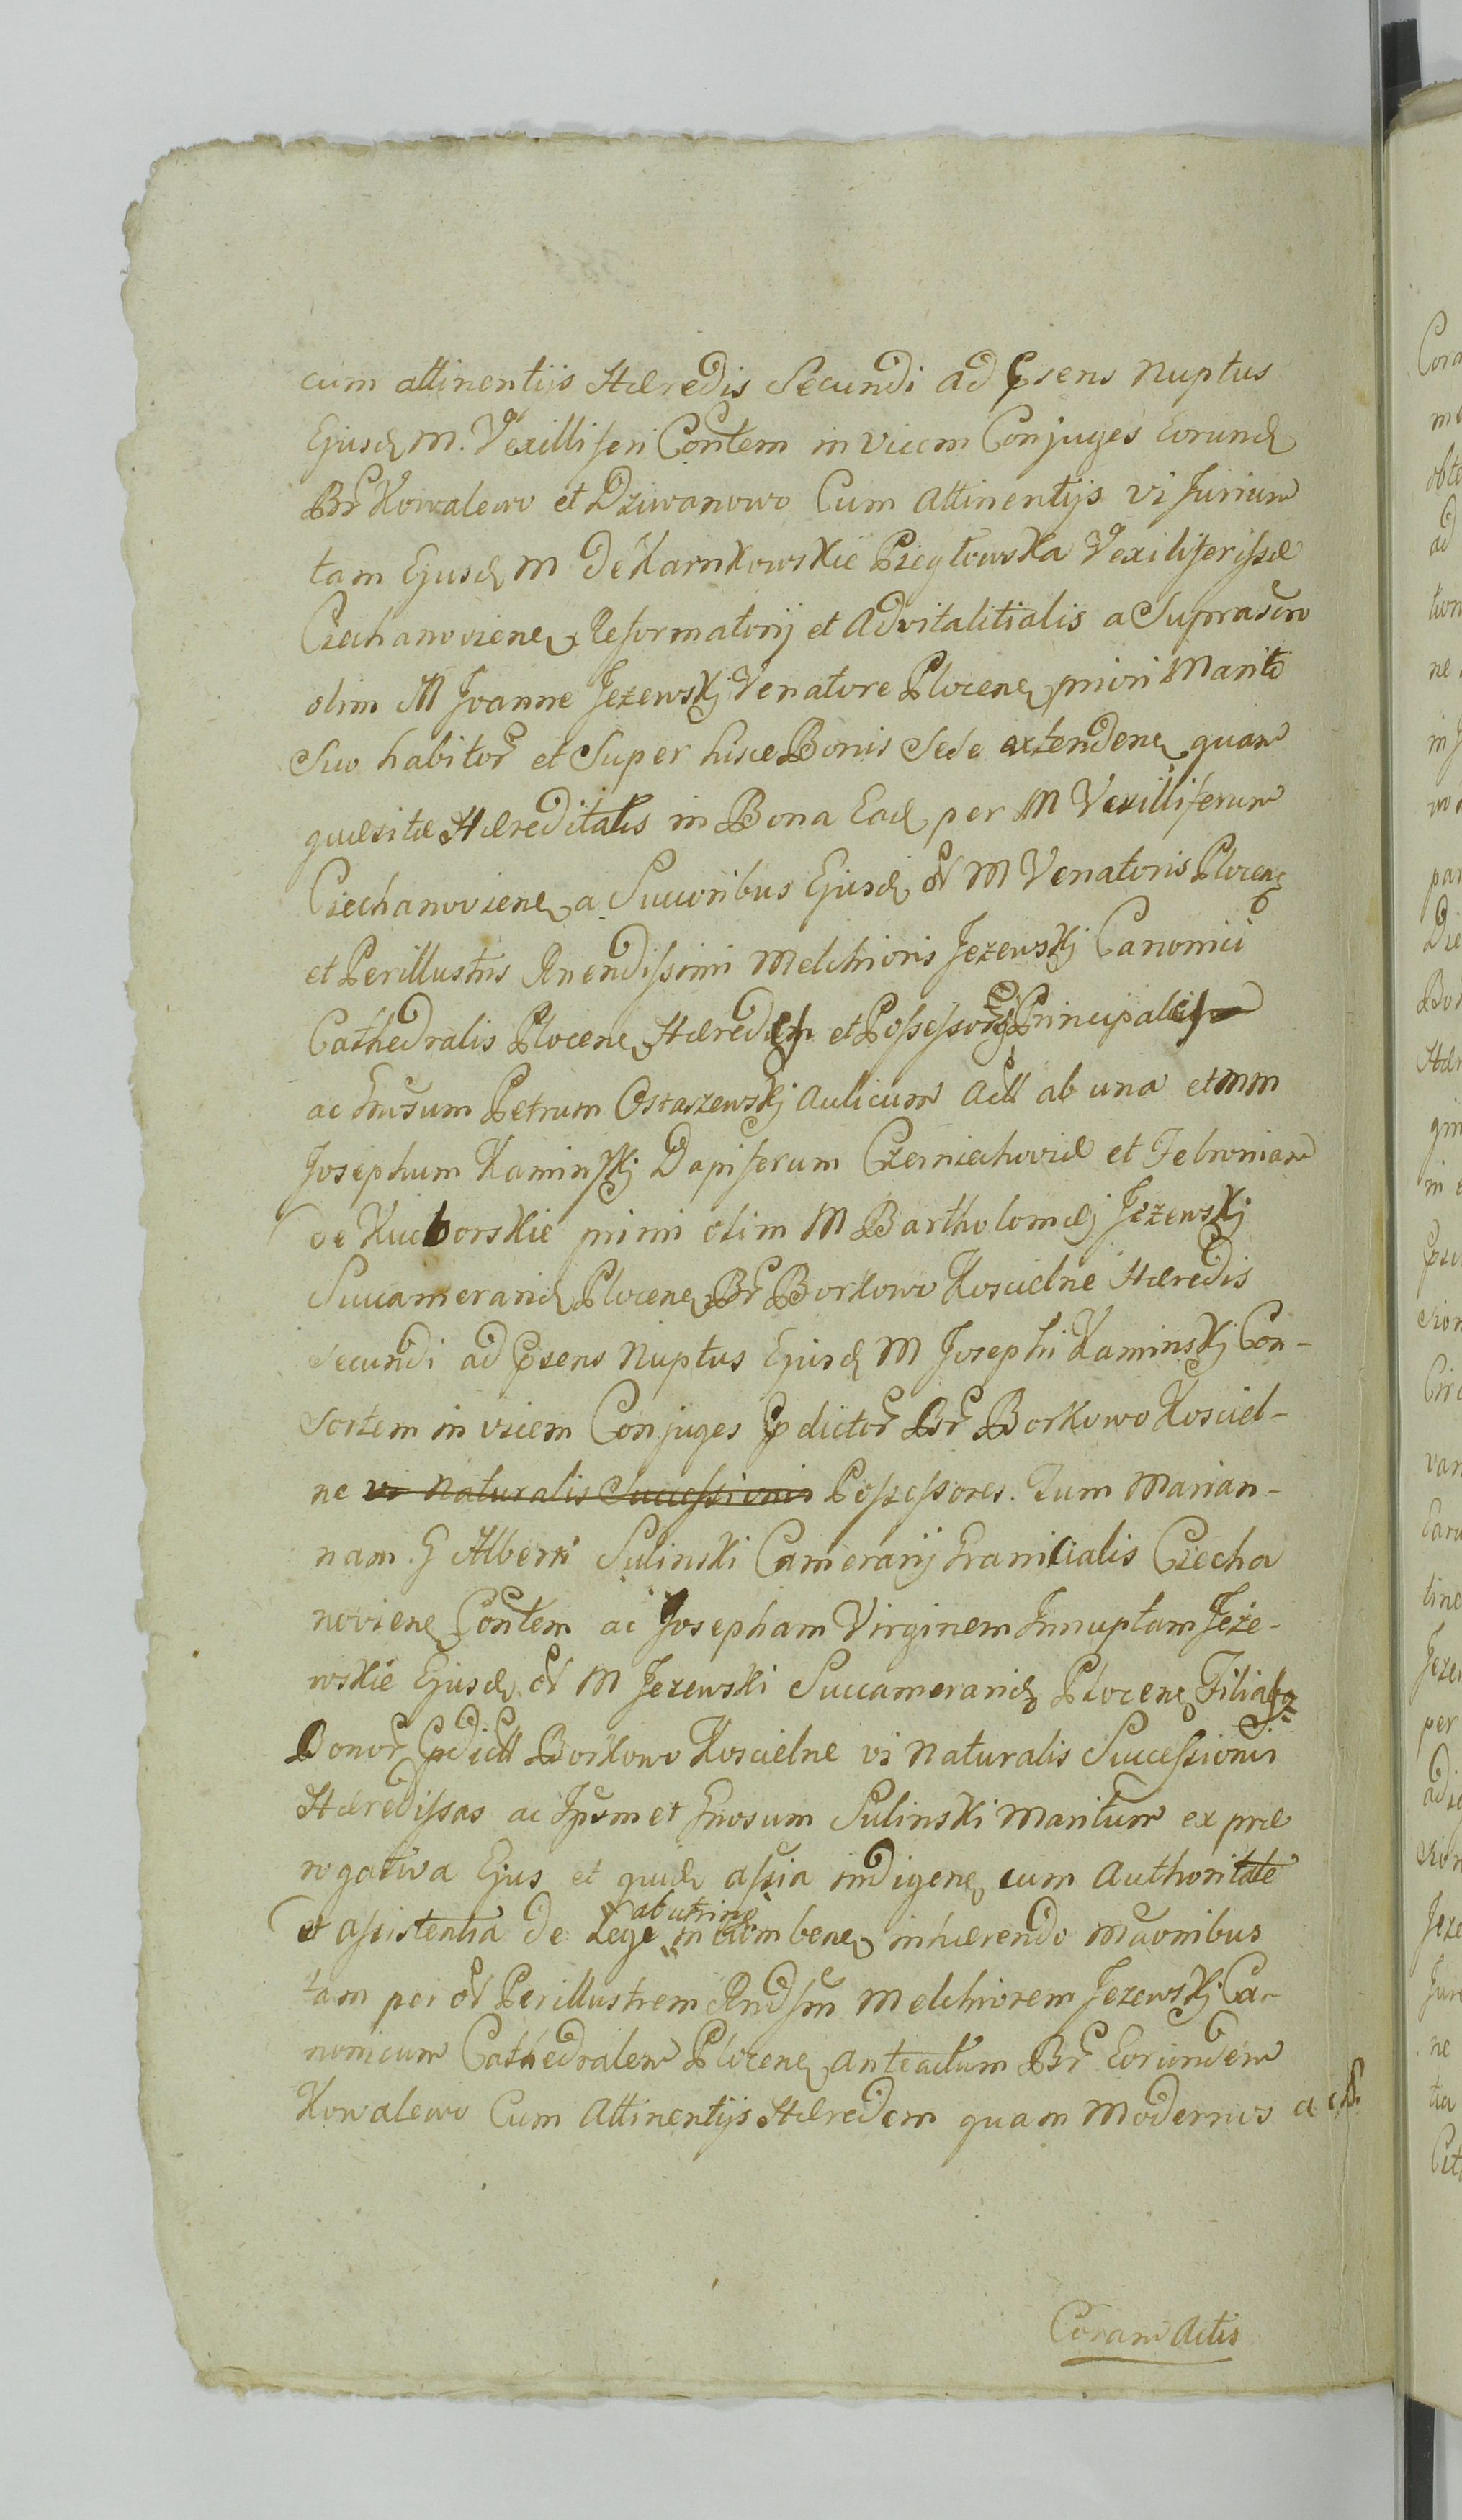 cum attinentijs Hæredis Secundi ad Psens Nuptus
Ejusd M. Vexilliferi Contem in vicem Conjuges Eorund
Br Kowalewo et Dziwanowo Cum Attinentijs vi Jurium
tam Ejusd M De Karnkowskie Pzegtowska Vexiliferissæ
Ciechanoviene Reformatorij et Advitalitialis a Suprascro
olim M Joanne Jezewskj Venatore Plocene priori Marito
Suo habitor et Super hisce Bonis Sese extendene quam
quæsitæ Hæreditatis in Bona Ead per M Vexilliferum
Ciechanoviene a Succoribus Ejusd ol M Venatoris Plocene
et Perillustris Rnendissimi Melchioris Jezewskj Canonici
Cathedralis Plocene et Possessor Principal
ac Gnsum Petrum Ostaszewskj Aulicum Actt ab una et MM
Josephum Kaminskj Dapiferum Czerniechoviæ et Febroniam
de Kuchorskie primi olim M Bartholomæj Jezewskj
Succamerarid Plocene Br Borkowo Koscielne Hæredis
Secundi ad Psens Nuptus Ejusd M Josephi Kaminskj Con-
sortem in vicem Conjuges Pdictor Br Borkowo Kosciel-
ne vi Naturalis Successionis Possessores. Tum Marian-
nam. G Alberti Sulinski Camerarij Granicialis Ciecha
noviene Contem ac Josepham Virginem Innuptam Jeże-
wskie Ejusd ol M Jezewski Succamerarid Plocene Filias
Bonor Pdictt Borkowo Koscielne vi Naturalis Successionis
Hæredissas ac Ipsmet Gnosum Sulinski Maritum ex præ
rogativa Ejus et quid assia indigene cum Authoritate
et assistentia de Lege ab utrinq incombene inhærendo Mtionibus
tam per ol Perillustrem Rndsm Melchiorem Jezewskj Ca-
nonicum Cathedralem Plocene anteactum Br Eorundem
Kowalewo Cum Attinentijs Hæredem quam Modernos
Coram Actis